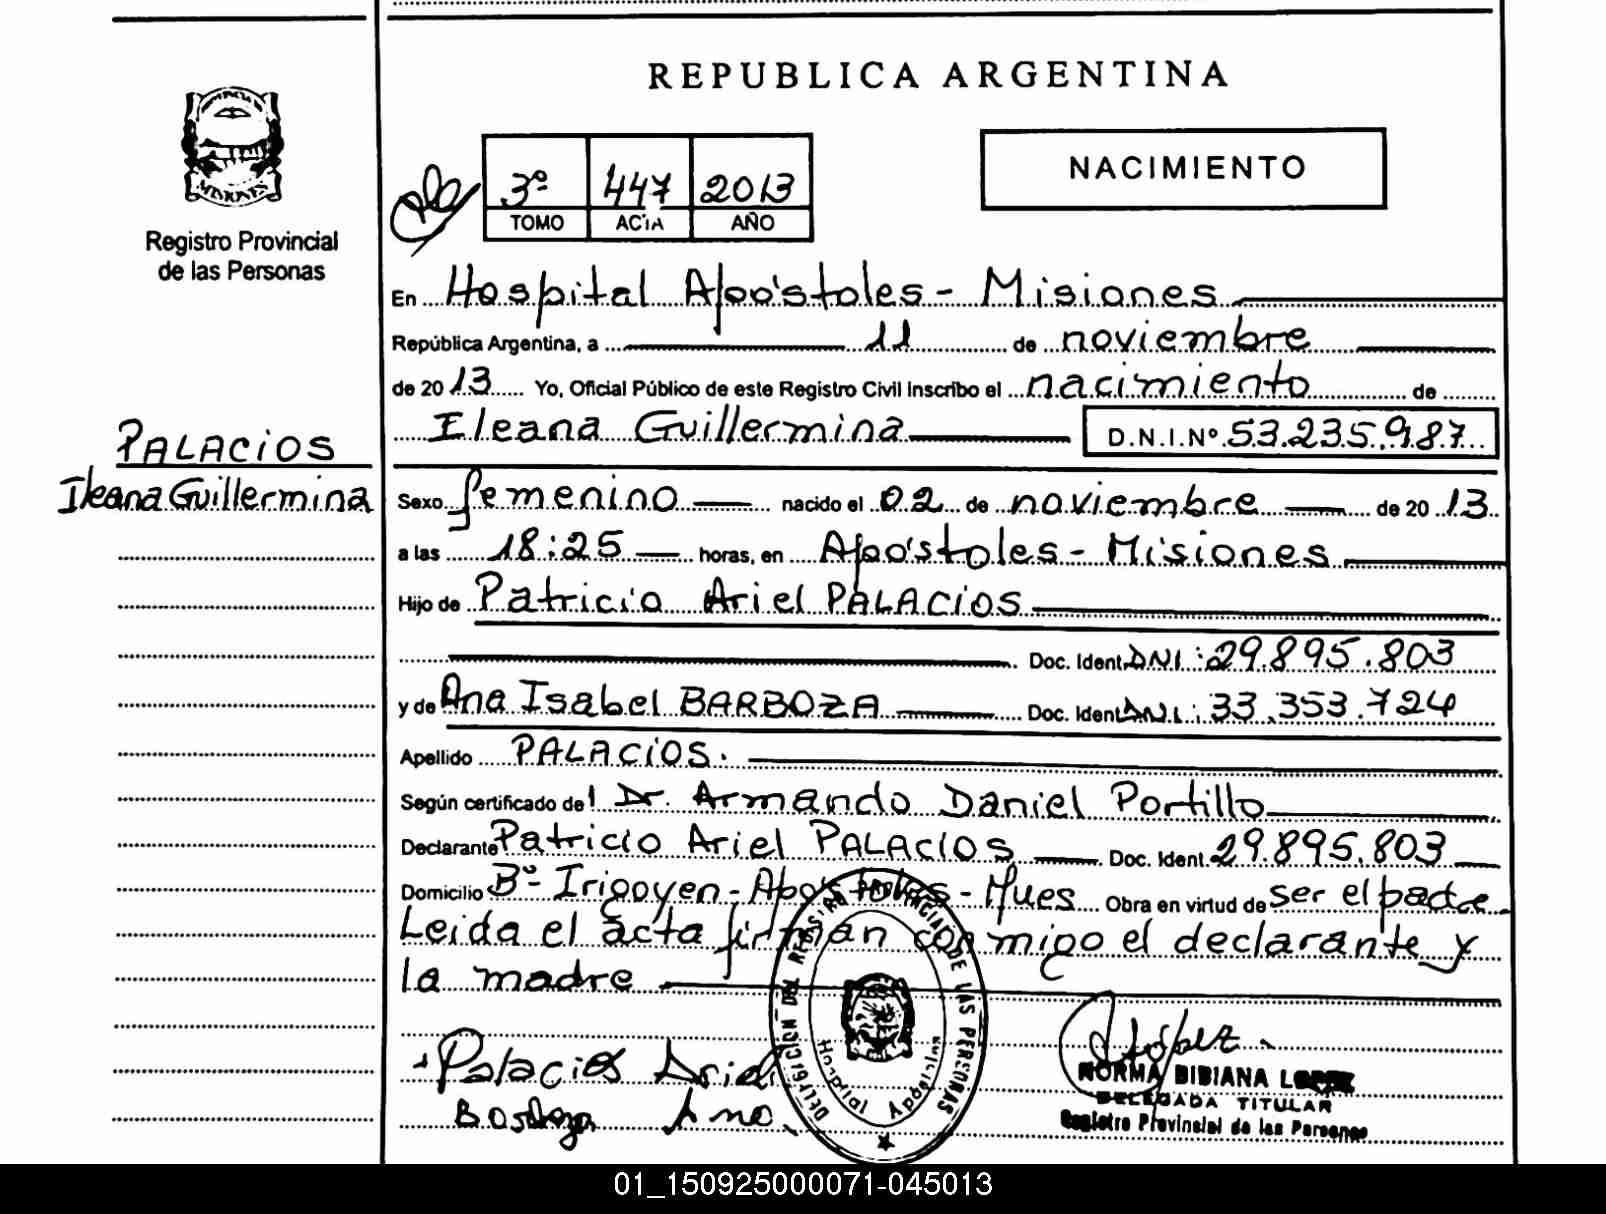 REPUBLICA ARGENTINA
PROVINCIA DE
MISIONES
Registro Provincial
de las Personas
3º 447 2013
TOMO ACTA AÑO
NACIMIENTO
En Hospital Apóstoles - Misiones
República Argentina, a 11 de noviembre
de 2013 Yo, Oficial Público de este Registro Civil Inscribo el nacimiento de
Ileana Guillermina D.N.I.Nº 53.235.987
PALACIOS
Ileana Guillermina
Sexo femenino nacido el 02 de noviembre de 2013
a las 18:25 horas, en Apóstoles - Misiones
Hijo de Patricio Ariel PALACIOS
Doc. Ident. DNI: 29.895.803
y de Ana Isabel BARBOZA Doc. Ident. DNI: 33.353.724
Apellido PALACIOS.
Según certificado del Dr. Armando Daniel Portillo
Declarante Patricio Ariel PALACIOS Doc. Ident. 29.895.803
Domicilio Bº Irigoyen - Apóstoles - Mnes Obra en virtud de ser el padre
Leida el acta firman conmigo el declarante y
la madre
DELEGACION DEL REGISTRO PROVINCIAL DE LAS PERSONAS
Hospital Apóstoles
Palacios Ariel
Ana
López
NORMA BIBIANA LOPEZ
DELEGADA TITULAR
Registro Provincial de las Personas
01_150925000071-045013